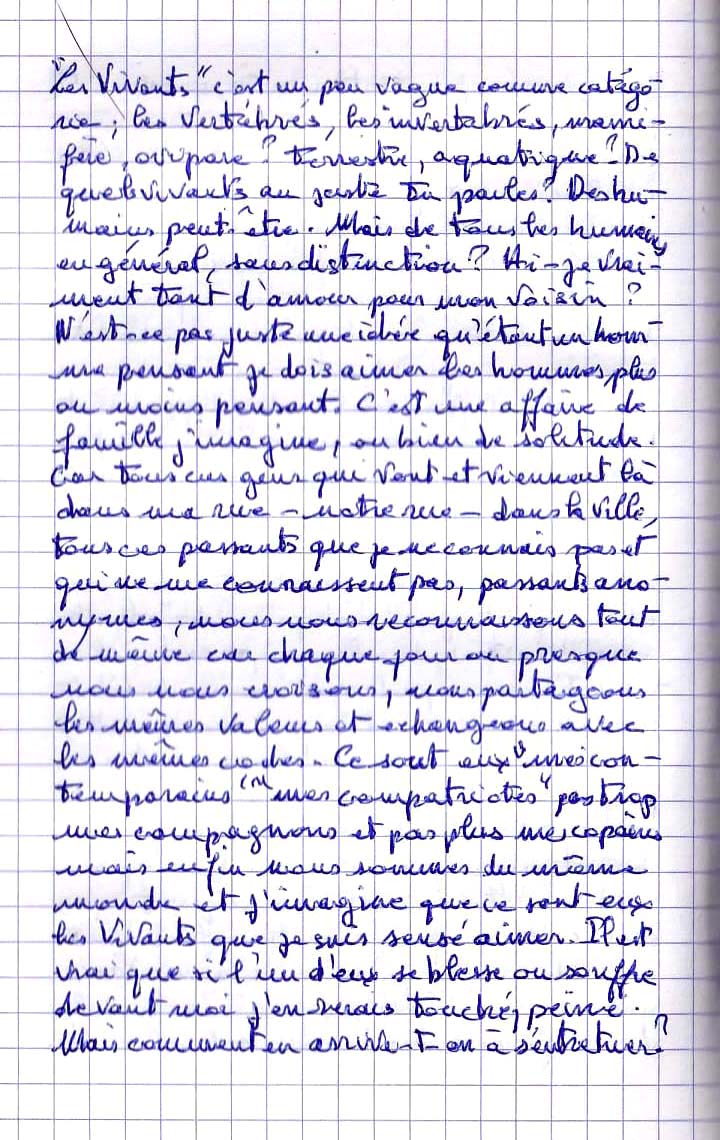 "Les Vivants" c'est un peu vague comme catégo-
rie ; les Vertébrés, les invertabrés, mami-
fère, ovipare ? terrestre, aquatique ? De
quels vivants au juste tu parles ? Des hu-
mains peut-être. Mais de tous les humains
en général, sans distinction ? Ai-je vrai-
ment tant d'amour pour mon voisin ?
N'est-ce pas juste une idée qu'étant un hom-
me pensant je dois aimer les hommes, plus
ou moins pensant. C'est une affaire de
famille j'imagine, ou bien de solitude.
Car tous ces gens qui vont et viennent là
dans ma rue - notre rue - dans la ville,
tous ces passants que je ne connais pas et
qui ne me connaissent pas, passants ano-
nymes, nous nous reconnaissons tout
de même car chaque jour ou presque
nous nous croisons, nous partageons
les mêmes valeurs et echangeons avec
les mêmes codes. Ce sont eux "mes con-
temporains" "mes compatriotes" pas trop
mes compagnons et pas plus mes copains
mais enfin nous sommes du même
monde et j'imagine que ce sont eux
les Vivants que je suis sensé aimer. Il est
vrai que si l'un d'eux se blesse ou souffre
devant moi j'en serais touché, peiné.
Mais comment en arrive-t-on à s'entretuer ?